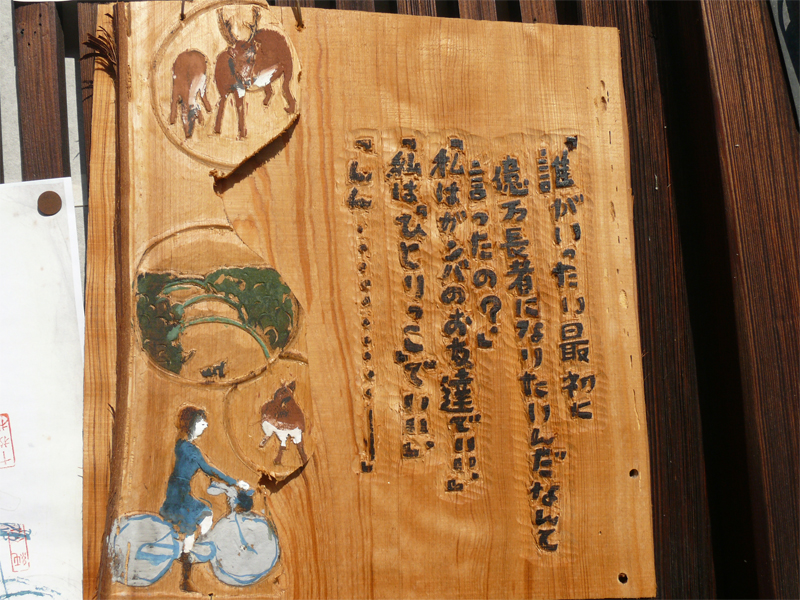 「誰がいったい最初に
億万長者になりたいんだなんて
言ったの？」
「私はガンバのお友達でいい。」
「私は”ひとりっこ”でいい。」
「んん・・・・・・・・・・・ー」